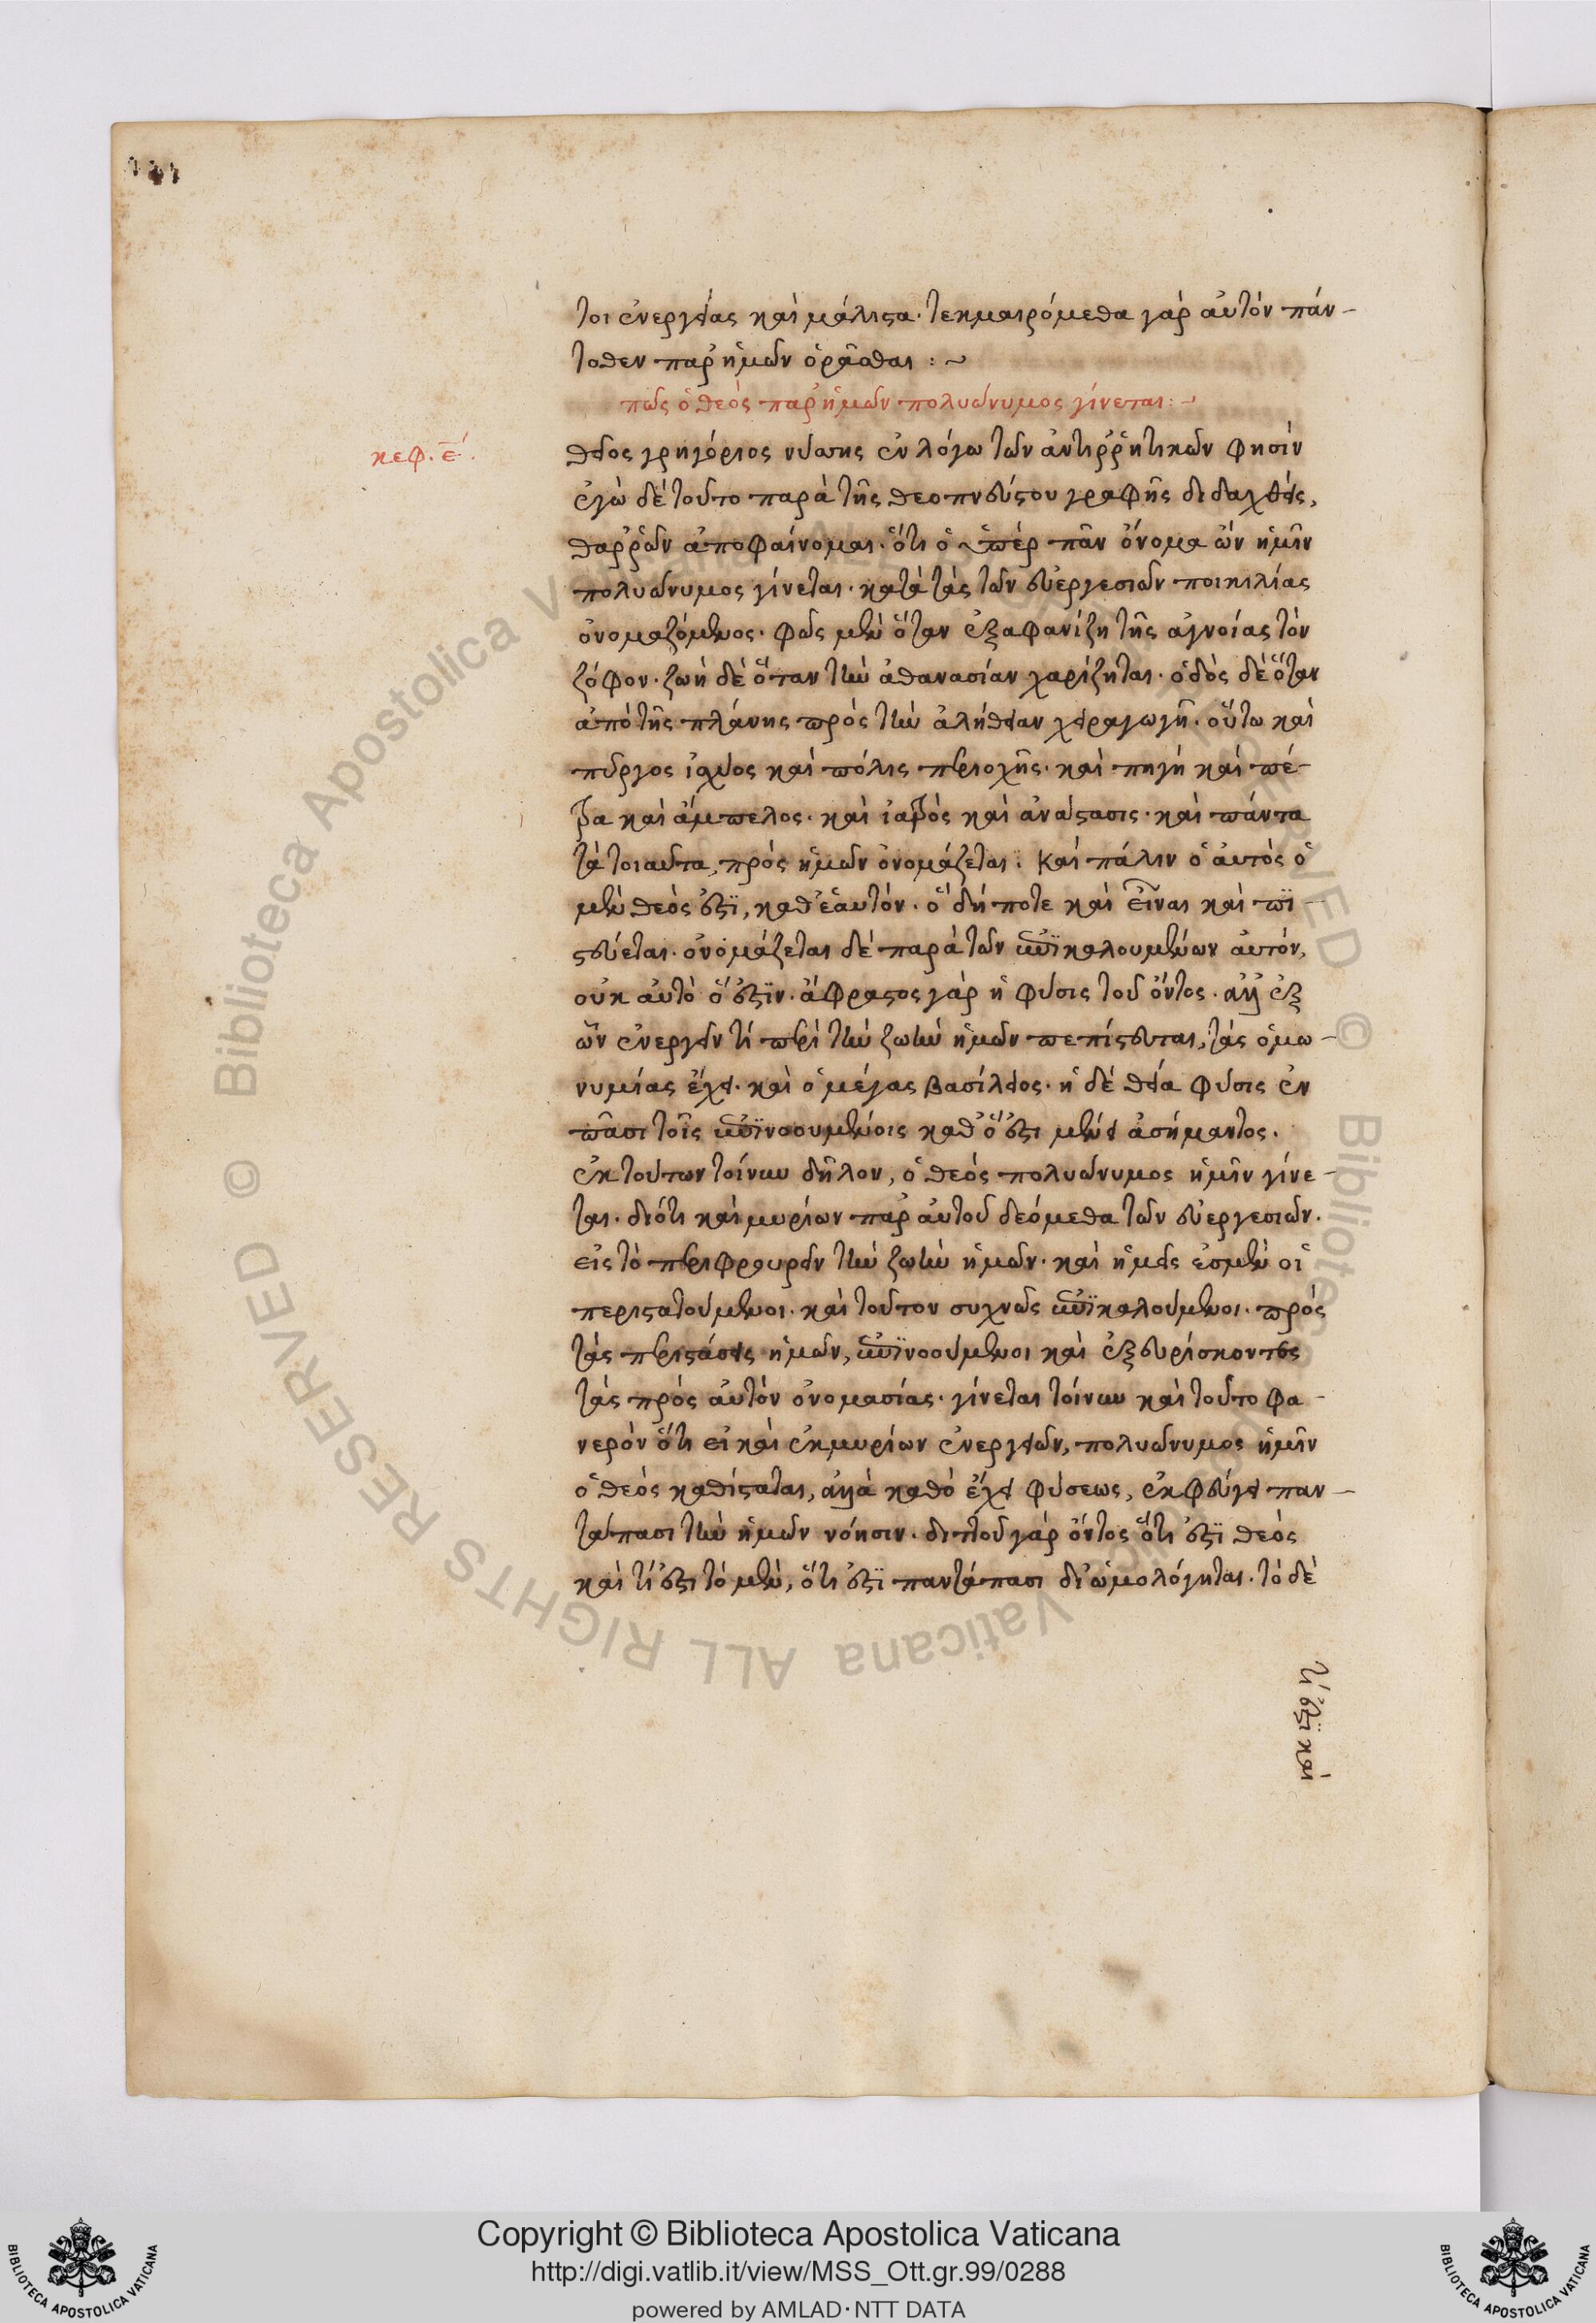 τοι ἐνεργείας καὶ μάλιστα· τεκμαιρόμεθα γὰρ αὐτὸν πάν-
τοθεν παρ' ἡμῶν ὁρᾶσθαι :~
πῶς ὁ θεὸς παρ' ἡμῶν πολυώνυμος γίνεται :~
κεφ. ε̄.
θεῖος γρηγόριος νύσσης ἐν λόγω τῶν ἀντιῤῥητικῶν φησὶν
ἐγὼ δὲ τοῦτο παρὰ τῆς θεοπνεύστου γραφῆς διδαχθεὶς,
θαῤῥῶν ἀποφαίνομαι· ὅτι ὁ ὑπὲρ πᾶν ὄνομα ὢν ἡμῖν
πολυώνυμος γίνεται· κατὰ τὰς τῶν εὐεργεσιῶν ποικιλίας
ὀνομαζόμενος· φῶς μὲν ὅταν ἐξαφανίζη τῆς ἀγνοίας τὸν
ζόφον· ζωὴ δὲ ὅταν τὴν ἀθανασίαν χαρίζηται· ὁδὸς δὲ ὅταν
ἀπὸ τῆς πλάνης πρὸς τὴν ἀλήθειαν χειραγωγῆ· οὕτω καὶ
πύργος ἰσχύος καὶ πόλις περιοχῆς· καὶ πηγὴ καὶ πέ-
τρα καὶ ἄμπελος· καὶ ἰατρὸς καὶ ἀνάστασις· καὶ πάντα
τὰ τοιαῦτα, πρὸς ἡμῶν ὀνομάζεται. Καὶ πάλιν ὁ αὐτὸς ὁ
μὲν θεός ἐστϊ, καθ' ἑαυτὸν· ὅ δή ποτε καὶ εἶναι καὶ πι-
στεύεται· ὀνομάζεται δὲ παρὰ τῶν ἐπϊκαλουμένων αὐτόν,
οὐκ αὐτὸ ὅ ἐστϊν· ἄφραστος γὰρ ἡ φύσις τοῦ ὄντος· ἀλλ' ἐξ
ὧν ἐνεργεῖν τί περὶ τὴν ζωὴν ἡμῶν πεπίστευται, τὰς ὁμω-
νυμίας ἔχει· καὶ ὁ μέγας βασίλειος· ἡ δὲ θεία φύσις ἐν
πᾶσι τοῖς ἐπϊνοουμένοις καθ' ὅ ἐστι μένει ἀσήμαντος.
ἐκ τούτων τοίνυν δῆλον, ὁ θεὸς πολυώνυμος ἡμῖν γίνε-
ται· διότι καὶ μυρίων παρ' αὐτοῦ δεόμεθα τῶν εὐεργεσιῶν.
εἰς τὸ περιφρουρεῖν τὴν ζωὴν ἡμῶν· καὶ ἡμεῖς ἐσμὲν οἱ
περιστατούμενοι· καὶ τοῦτον συχνῶς ἐπϊκαλούμενοι· πρὸς
τὰς περιστάσεις ἡμῶν, ἐπϊνοούμενοι καὶ ἐξευρίσκοντες
τὰς πρὸς αὐτὸν ὀνομασίας· γίνεται τοίνυν καὶ τοῦτο φα-
νερὸν ὅτι εἰ καὶ ἐκ μυρίων ἐνεργειῶν, πολυώνυμος ἡμῖν
ὁ θεὸς καθίσταται, ἀλλὰ καθὸ ἔχει φύσεως, ἐκφεύγει παν-
τάπασι τὴν ἡμῶν νόησιν· διττοῦ γὰρ ὄντος ὅτι ἐστϊ θεὸς
καὶ τί ἐστι τὸ μὲν, ὅτι ἐστϊ παντάπασι διωμολόγηται· τὸ δὲ
τί ἐστϊ καὶ
Copyright © Biblioteca Apostolica Vaticana
http://digi.vatlib.it/view/MSS_Ott.gr.99/0288
powered by AMLAD·NTT DATA